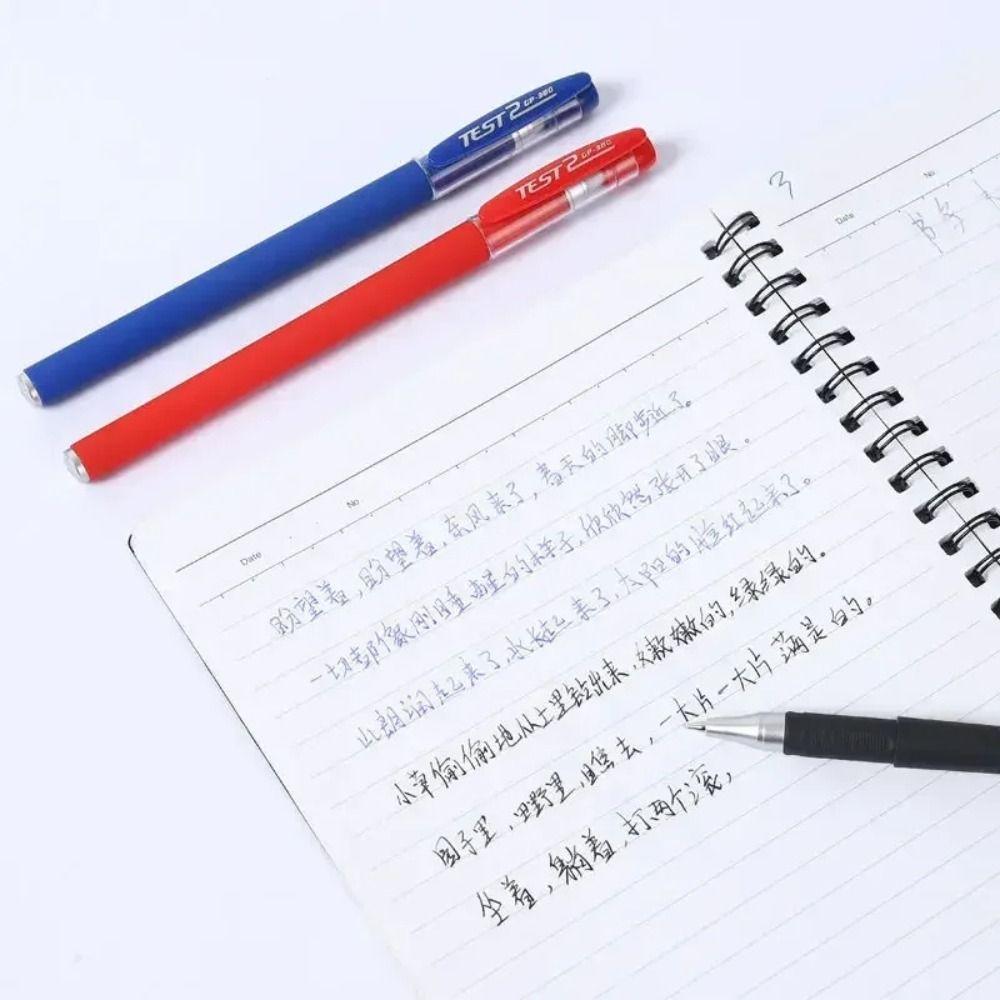 TEST 2 GP-380
TEST 2 GP-380
3
No
Date
书写
No
Date
盼望着,盼望着,东风来了,春天的脚步近了。
一切都像刚睡醒的样子,欣欣然张开了眼。
山朗润起来了,水长起来了,太阳的脸红起来了。
小草偷偷地从土里钻出来,嫩嫩的,绿绿的。
园子里,田野里,瞧去,一大片一大片满是的。
坐着,躺着,打两个滚,